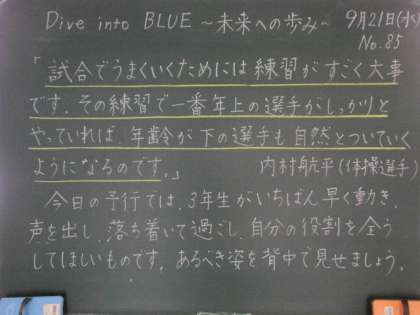 Dive into BLUE ～未来への歩み～ 9月21日(水)
No.85
「試合でうまくいくためには練習がすごく大事
です。その練習で一番年上の選手がしっかりと
やっていれば、年齢が下の選手も自然とついていく
ようになるのです。」 内村航平(体操選手)
今日の予行では、3年生がいちばん早く動き、
声を出し、落ち着いて過ごし、自分の役割を全う
してほしいものです。あるべき姿を背中で見せましょう。